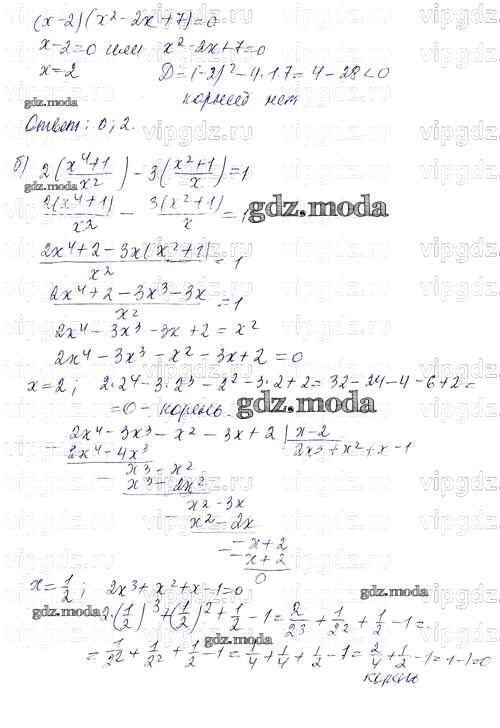 (x-2)(x²-2x+7)=0
x-2=0 или x²-2x+7=0
x=2 D=(-2)²-4·1·7=4-28<0
корней нет
Ответ: 0; 2.
б) 2((x⁴+1)/x²)-3((x²+1)/x)=1
2(x⁴+1)/x² - 3(x²+1)/x = 1
(2x⁴+2-3x(x²+1))/x² = 1
(2x⁴+2-3x³-3x)/x² = 1
2x⁴-3x³-3x+2=x²
2x⁴-3x³-x²-3x+2=0
x=2; 2·2⁴-3·2³-2²-3·2+2=32-24-4-6+2=
=0-корень.
2x⁴-3x³-x²-3x+2 | x-2
2x⁴-4x³ 2x³+x²+x-1
x³-x²
x³-2x²
x²-3x
x²-2x
-x+2
-x+2
0
x=1/2; 2x³+x²+x-1=0
2·(1/2)³+(1/2)²+1/2-1=2/2³+1/2²+1/2-1=
=1/2²+1/2²+1/2-1=1/4+1/4+1/2-1=2/4+1/2-1=1-1=0
корень
gdz.moda
vipgdz.ru